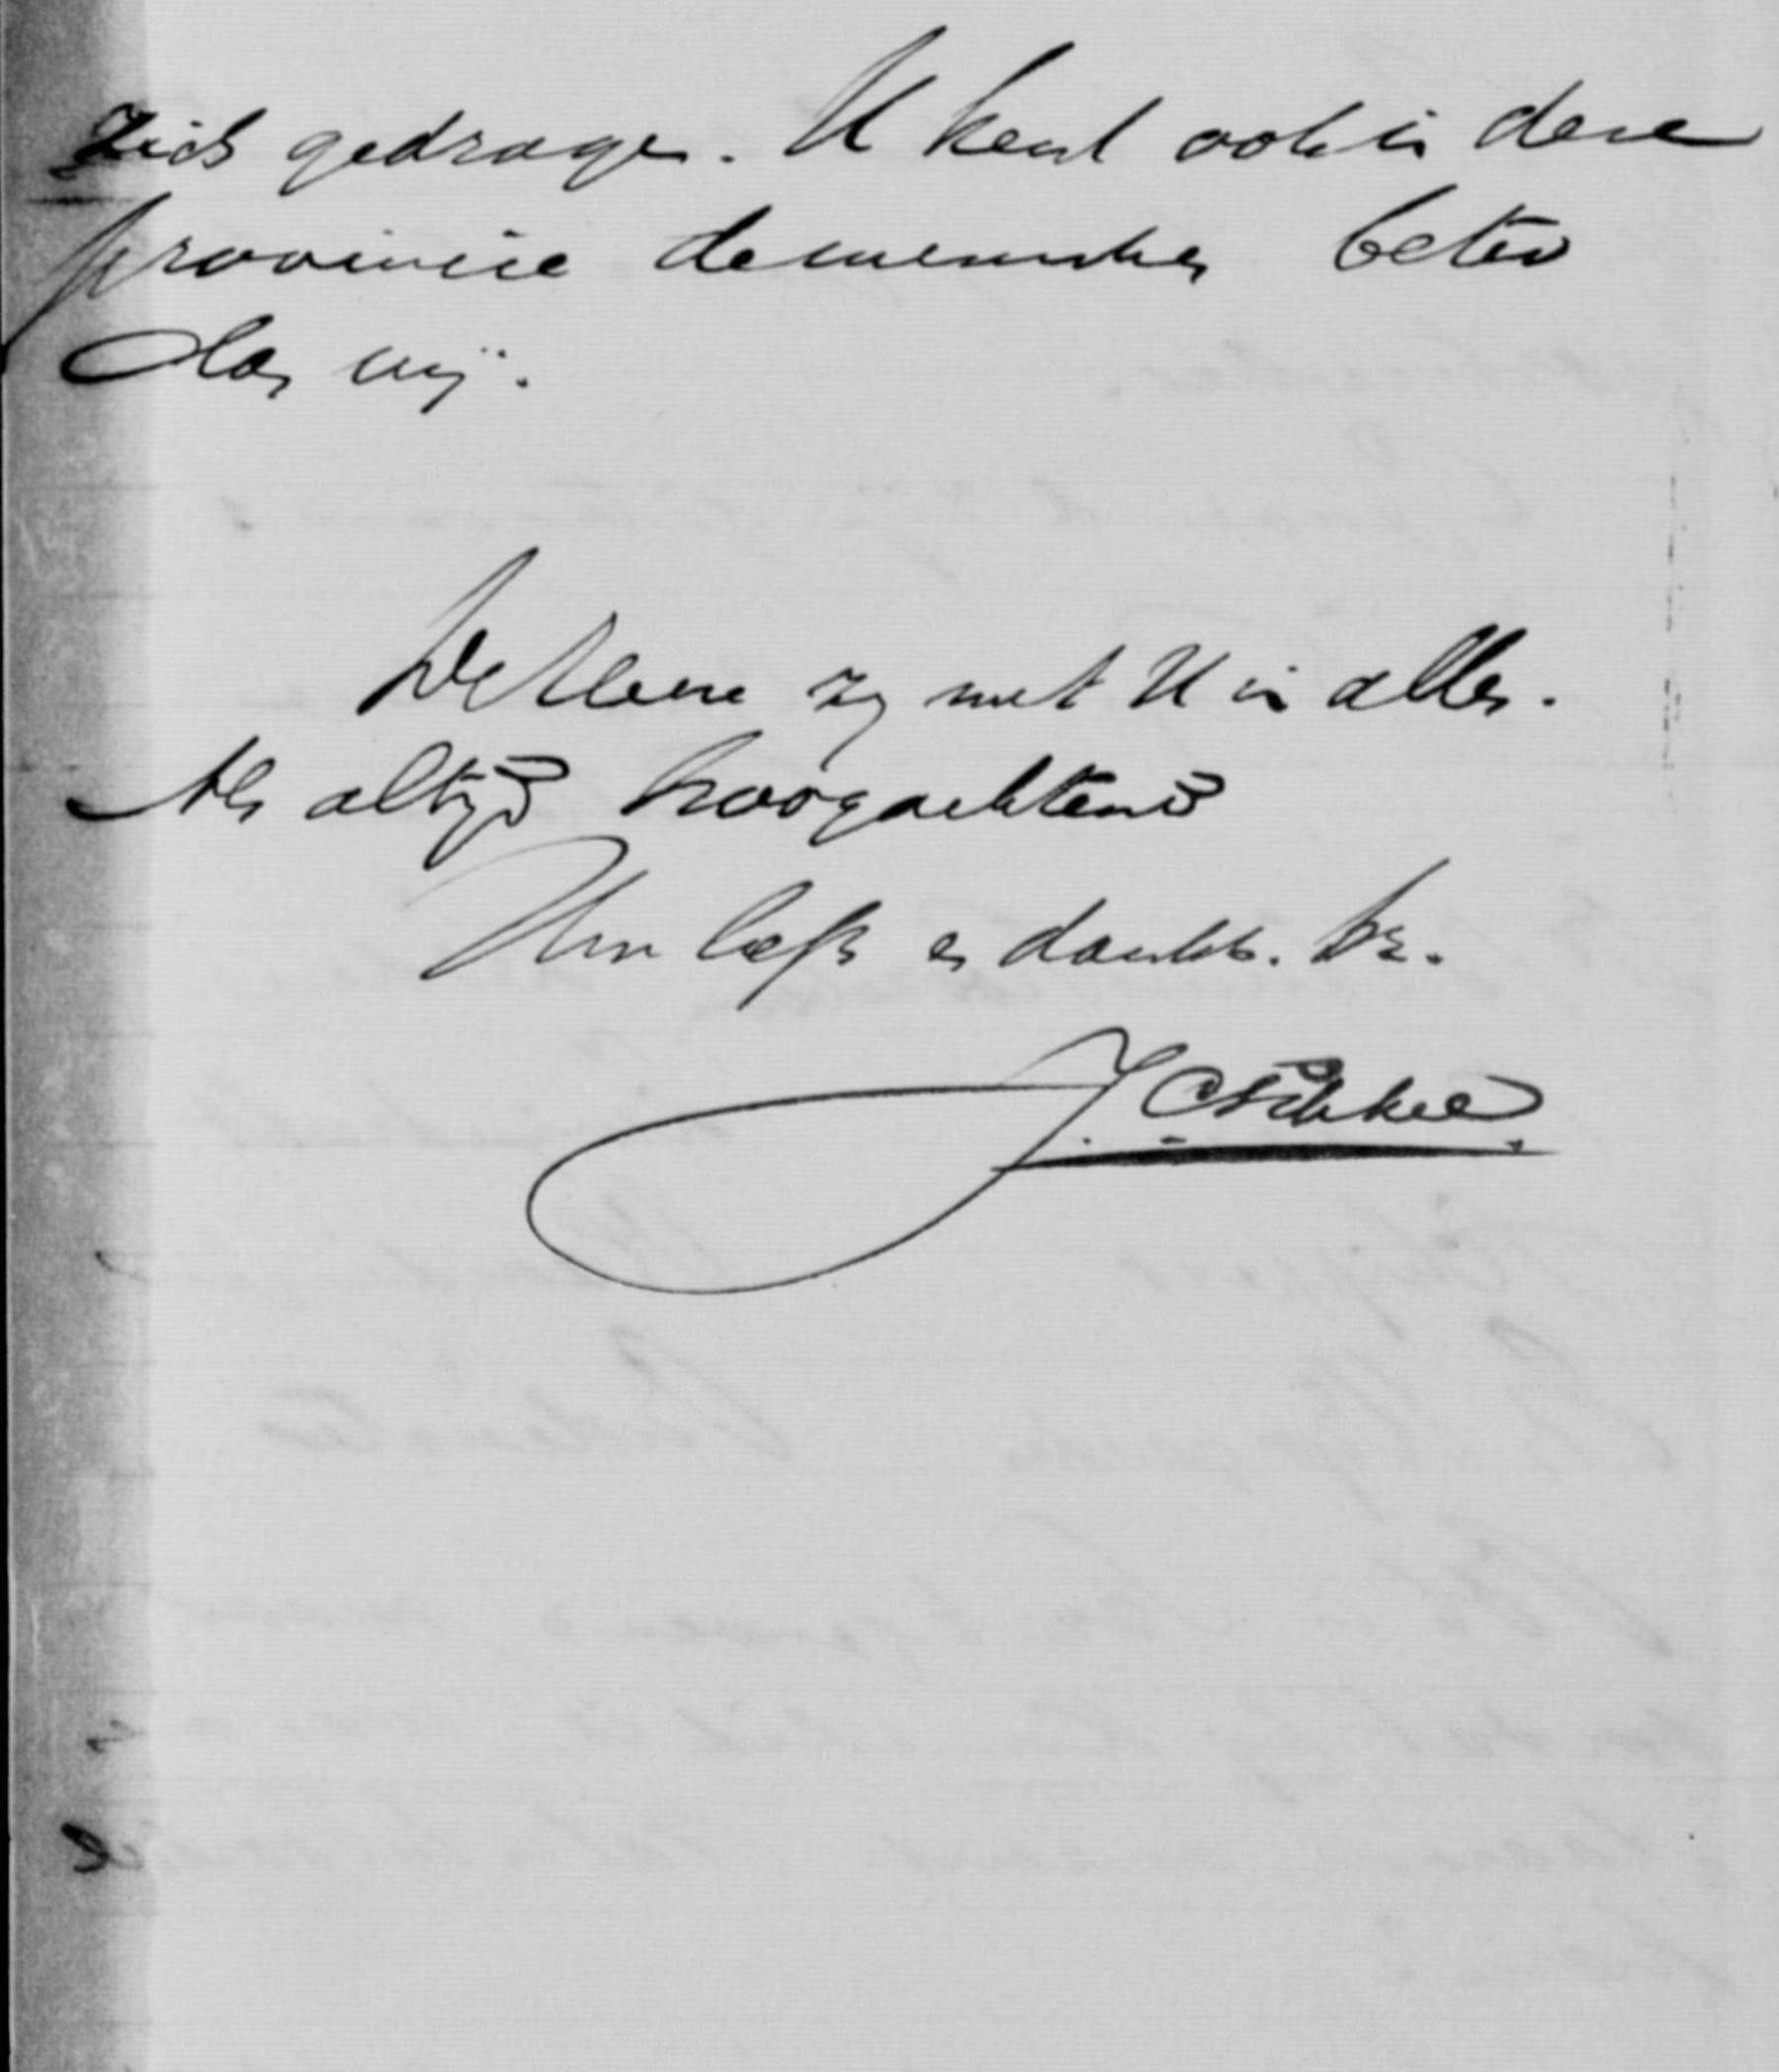 zich gedragen. U kent ook in deze
provincie de menschen beter
dan wij.
De Heere zij met U in alles.
Als altijd hoogachtend
Uw liefh en dankb. br.
J C Sikkel